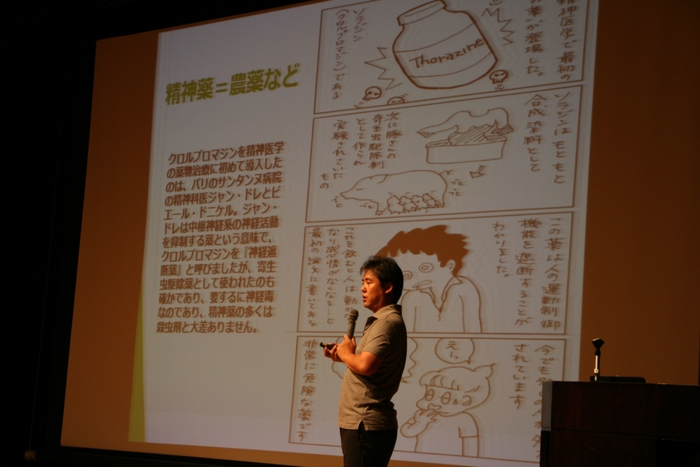 精神薬＝農薬など
クロルプロマジンを精神医学
の薬物治療に初めて導入した
のは、パリのサンタンヌ病院
の精神科医ジャン・ドレとピ
エール・ドニケル。ジャン・
ドレは中枢神経系の神経活動
を抑制する薬という意味で、
クロルプロマジンを「神経遮
断薬」と呼びましたが、寄生
虫駆除薬として使われたのも
確かであり、要するに神経毒
なのであり、精神薬の多くは
殺虫剤と大差ありません。
精神医学で最初の
お薬が登場した。
Thorazine
ソラジン
(クロルプロマジン)である
ソラジンはもともと
合成染料として
次に豚さんの
寄生虫駆除剤
として作られ
実験されていた
もの
この薬は人の運動制御
機能を遮断することが
わかりました。
これを飲むと人は動
なり感情がなくなると
最初の論文に書いてある
今でも
されています
えっ
非常に危険な薬です